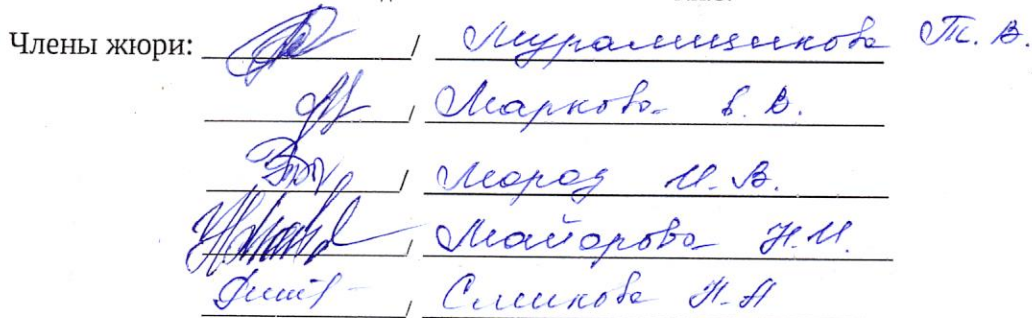 Члены жюри: / Мурамщикова Т. В.
/ Маркова В. В.
/ Мород И. В.
/ Майорова Н. И.
/ Смыкова Н. А